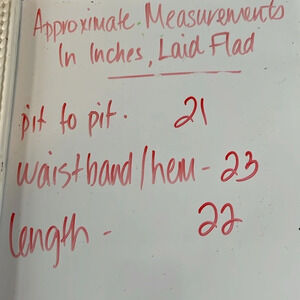 Approximate. Measurements
In Inches, Laid Flad
pit to pit. 21
waistband/hem - 23
length - 22